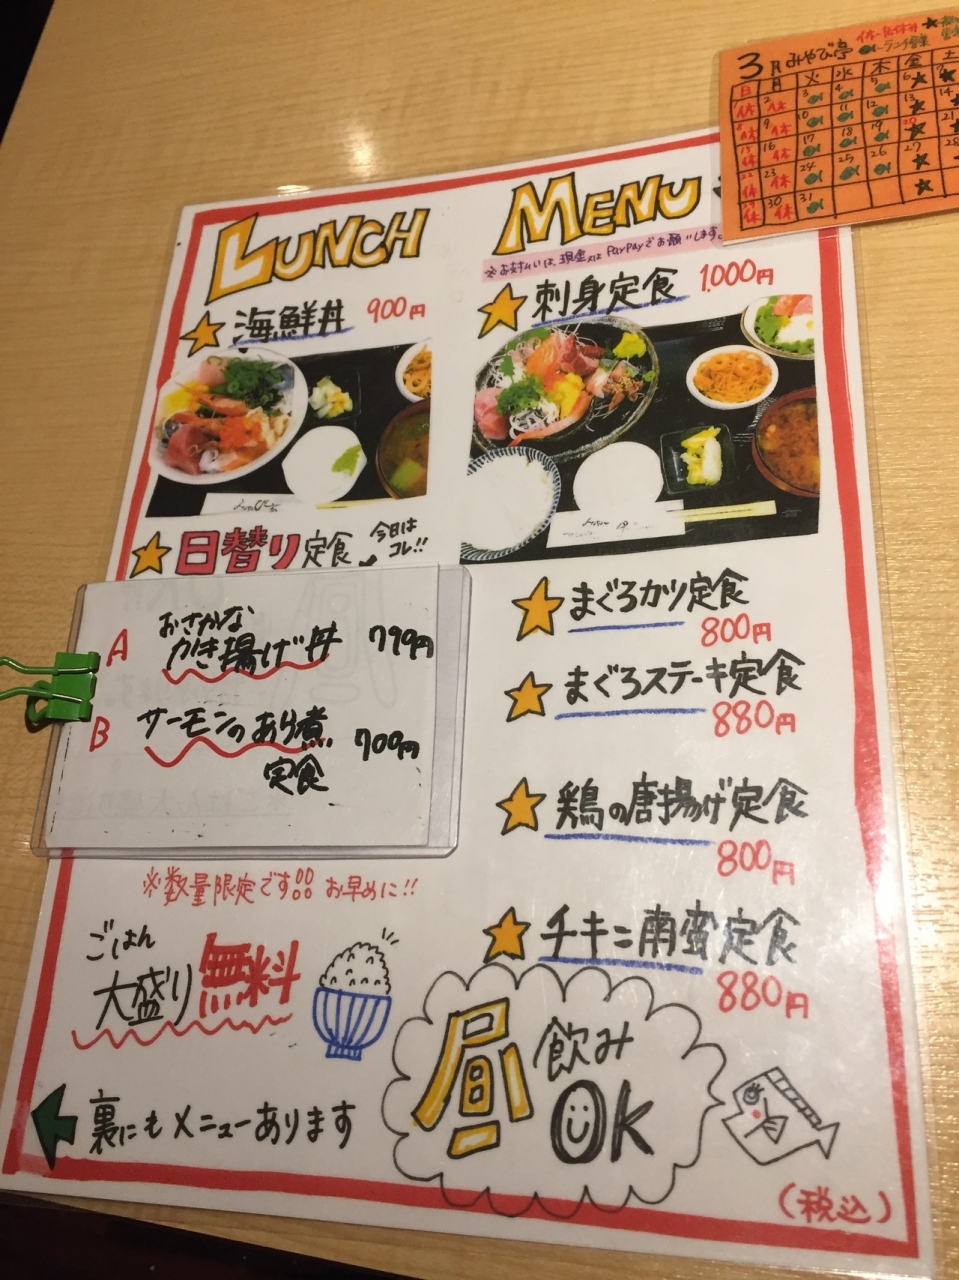 3月みやび亭
日 月 火 水 木 金 土
1休 2休 3 4 5 6 7
8休 9休 10 11 12 13 14
15休 16休 17 18 19 20 21
22休 23休 24 25 26 27 28
29休 30休 31
LUNCH MENU
※お支払いは、現金又はPayPayでお願いします。
海鮮丼 900円
刺身定食 1.000円
日替り定食 今日は
コレ!!
A おさかな
かき揚げ丼 799円
B サーモンのあら煮
定食 700円
※数量限定です!! お早めに!!
ごはん
大盛り無料
裏にもメニューあります
まぐろカツ定食
800円
まぐろステーキ定食
880円
鶏の唐揚げ定食
800円
チキン南蛮定食
880円
昼飲み
OK
(税込)